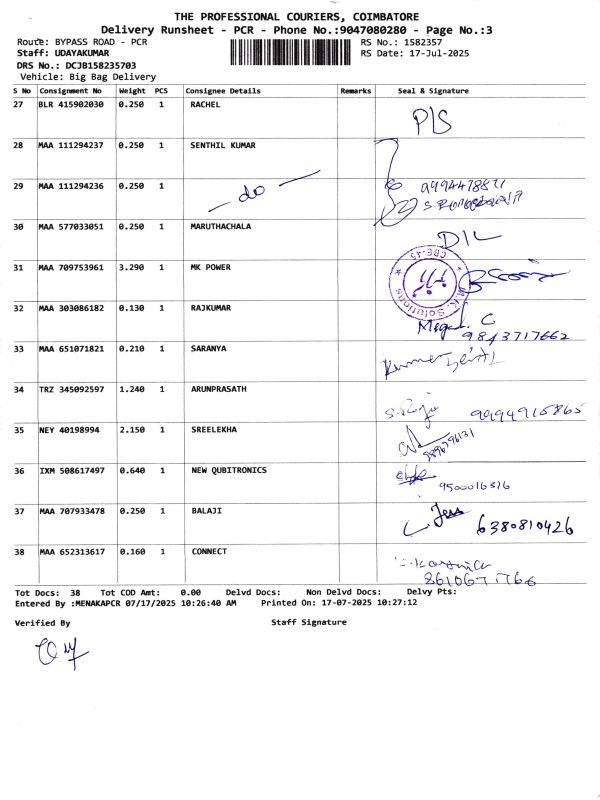 THE PROFESSIONAL COURIERS, COIMBATORE
Delivery Runsheet - PCR - Phone No.:9047080280 - Page No.:3
Route: BYPASS ROAD - PCR RS No.: 1582357
Staff: UDAYAKUMAR RS Date: 17-Jul-2025
DRS No.: DCJB158235703
Vehicle: Big Bag Delivery
S No Consignment No Weight PCS Consignee Details Remarks Seal & Signature
27 BLR 415902030 0.250 1 RACHEL P/S
28 MAA 111294237 0.250 1 SENTHIL KUMAR
29 MAA 111294236 0.250 1 — do —
30 MAA 577033051 0.250 1 MARUTHACHALA D/L
31 MAA 709753961 3.290 1 MK POWER
M.K. Solutions CBE-45
32 MAA 303086182 0.130 1 RAJKUMAR
9843717662
33 MAA 651071821 0.210 1 SARANYA
34 TRZ 345092597 1.240 1 ARUNPRASATH
S. Raja 9994915865
35 NEY 40198994 2.150 1 SREELEKHA
36 IXM 508617497 0.640 1 NEW QUBITRONICS
9500016316
37 MAA 707933478 0.250 1 BALAJI Jess 6380810426
38 MAA 652313617 0.160 1 CONNECT
8610671766
Tot Docs: 38 Tot COD Amt: 0.00 Delvd Docs: Non Delvd Docs: Delvy Pts:
Entered By :MENAKAPCR 07/17/2025 10:26:40 AM Printed On: 17-07-2025 10:27:12
Verified By Staff Signature